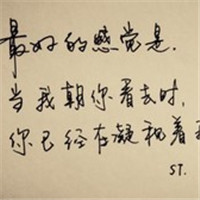 最好的感觉是.
当我朝你看去时,
你已经在凝视着
ST.